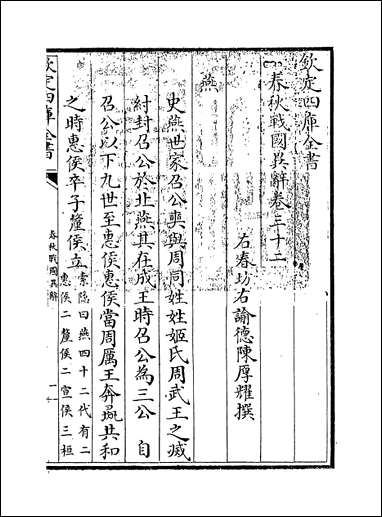 欽定四庫全書
春秋戰國異辭卷三十二
右春坊右諭德陳厚耀撰
燕
史燕世家召公奭與周同姓姓姬氏周武王之滅
紂封召公於北燕其在成王時召公為三公　自
召公以下九世至惠侯惠侯當周厲王奔彘共和
之時惠侯卒子釐侯立
索隱曰燕四十二代有二
惠侯二釐侯二宣侯三桓
欽定四庫全書
春秋戰國異辭
一